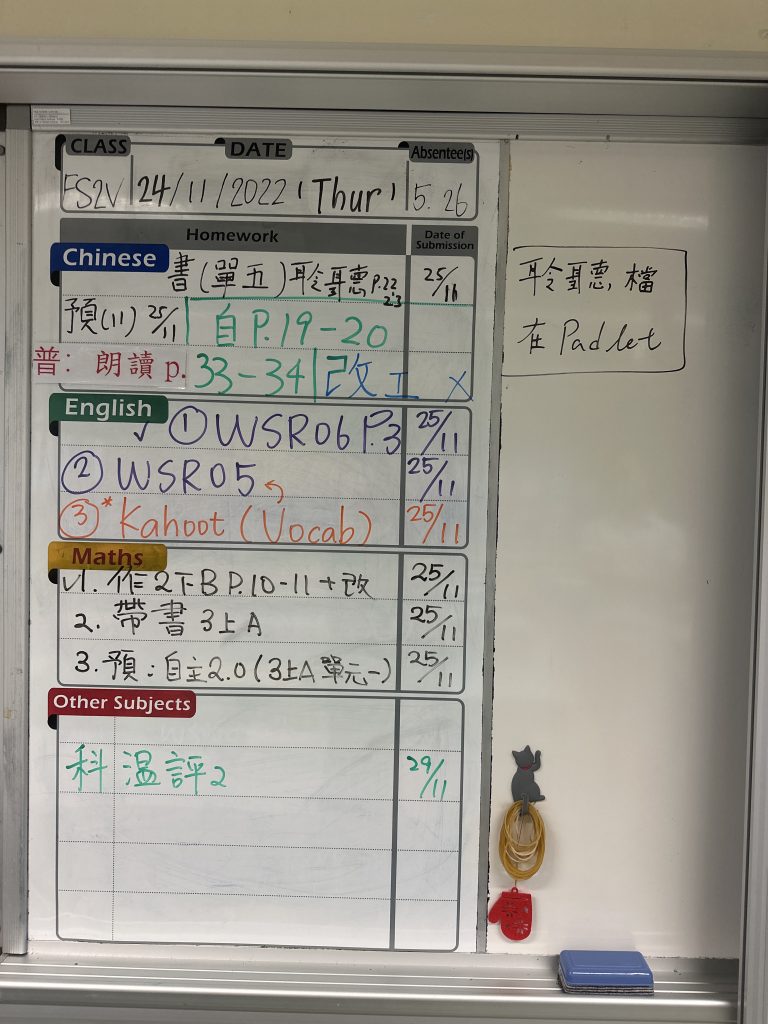 CLASS DATE Absentee(s)
FS2V 24/11/2022 (Thur) 5. 26
Homework Date of Submission
Chinese 書(單五)聆聽 P.22 23 25/11
預(11) 25/11 自P.19-20
普: 朗讀 p. 33-34 改工 X
English
✓ ① WSR06 P.3 25/11
② WSR05 25/11
③ *Kahoot (Vocab) 25/11
Maths
✓1. 作2下B P.10-11 + 改 25/11
2. 帶書 3上A 25/11
3. 預:自主2.0(3上A單元一) 25/11
Other Subjects
科 温評2 29/11
聆聽檔
在 Padlet